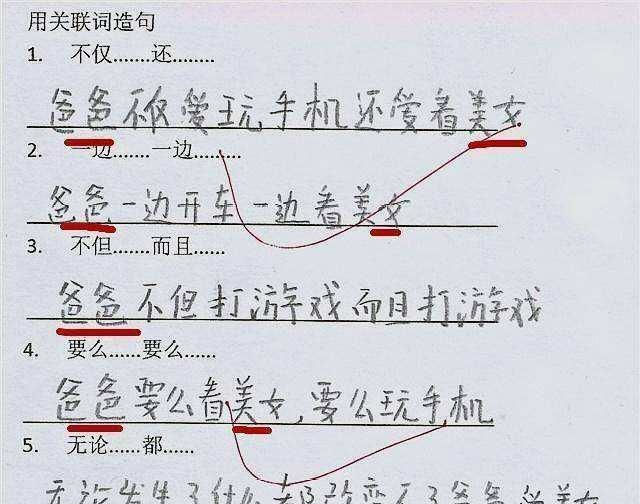 用关联词造句
1. 不仅……还……
爸爸不仅爱玩手机还爱看美女.
2. 一边……一边……
爸爸一边开车一边看美女
3. 不但……而且……
爸爸不但打游戏而且打游戏
4. 要么……要么……
爸爸要么看美女,要么玩手机
5. 无论……都……
无论发生了什么都改变不了爸爸爱美女